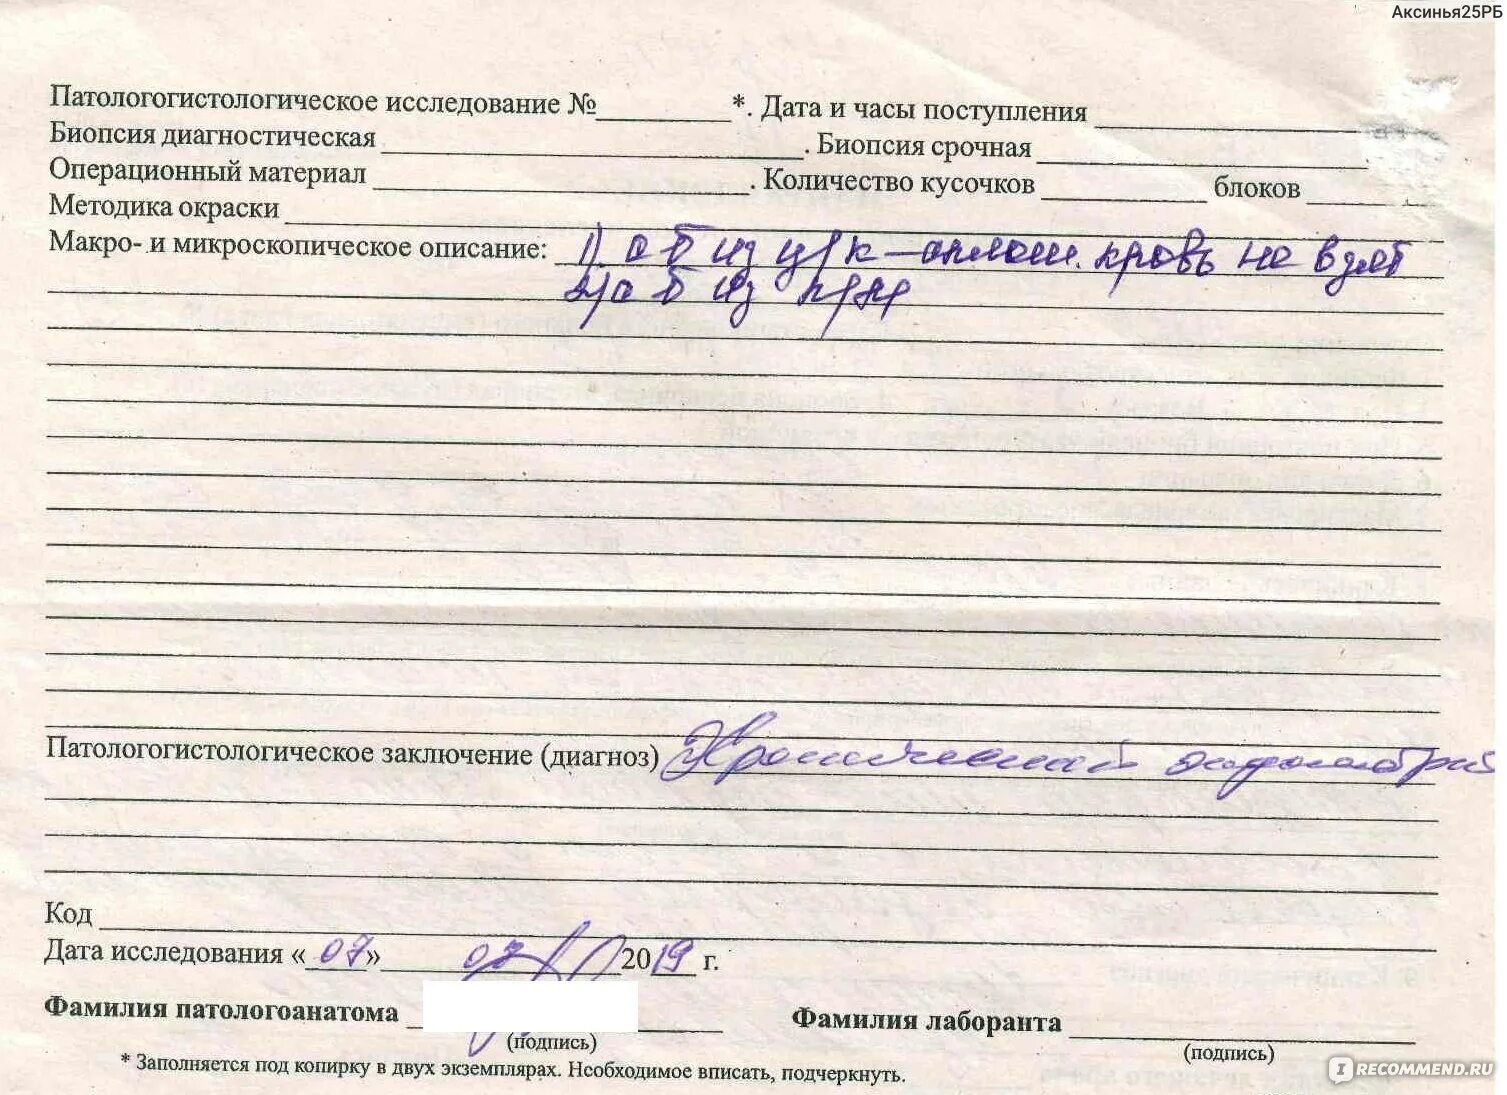 Аксинья25РБ
Патологогистологическое исследование №________*. Дата и часы поступления
Биопсия диагностическая ________. Биопсия срочная ________
Операционный материал ________. Количество кусочков ________ блоков ________
Методика окраски ________
Макро- и микроскопическое описание: 1) а б из ц/к – сплош. кровь не взят
2) а б из п/м
Патологогистологическое заключение (диагноз) Хронический эндометрит
Код ________
Дата исследования «07» 2019 г.
Фамилия патологоанатома ________ Фамилия лаборанта ________
(подпись) (подпись)
* Заполняется под копирку в двух экземплярах. Необходимое вписать, подчеркнуть.
IRECOMMEND.RU